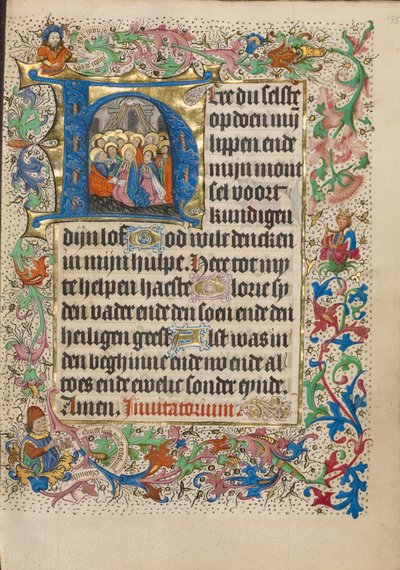 195
HEre du selste
opdoen mij
lippen ende
mijn mont
sel voort
kundigen
dijn lof God wilt dencken
in mijn hulpe Here tot mij
te helpen haeste Glorie sy
den vader ende den soen ende den
heiligen geest Alst was in
den beghinne ende nv ende al
toes ende ewelic sonder eynde.
Amen. Inuitatorium